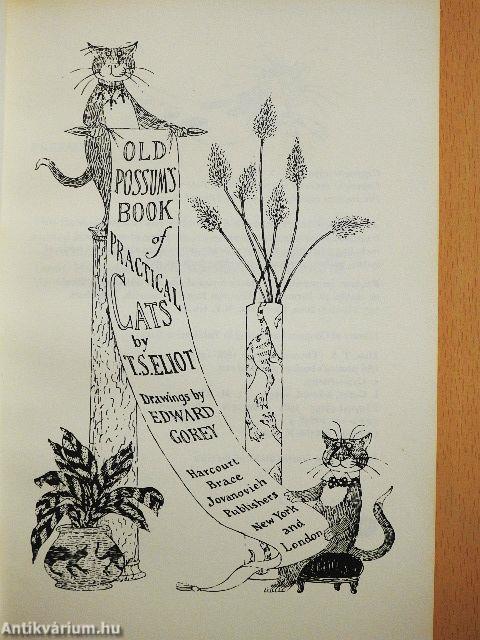 OLD
POSSUM'S
BOOK
of
PRACTICAL
CATS
by
T.S. ELIOT
Drawings by
EDWARD
GOREY
Harcourt
Brace
Jovanovich
Publishers
New York
and
London
Antikvárium.hu